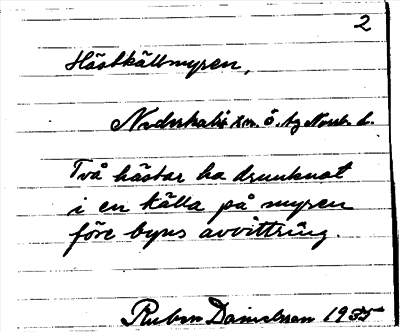 2
Hästkällmyren,
Nederkalix sn. Ö. tg Norrb. l.
Två hästar ha drunknat
i en källa på myren
före byns avvittring.
Ruben Danielsson 1935